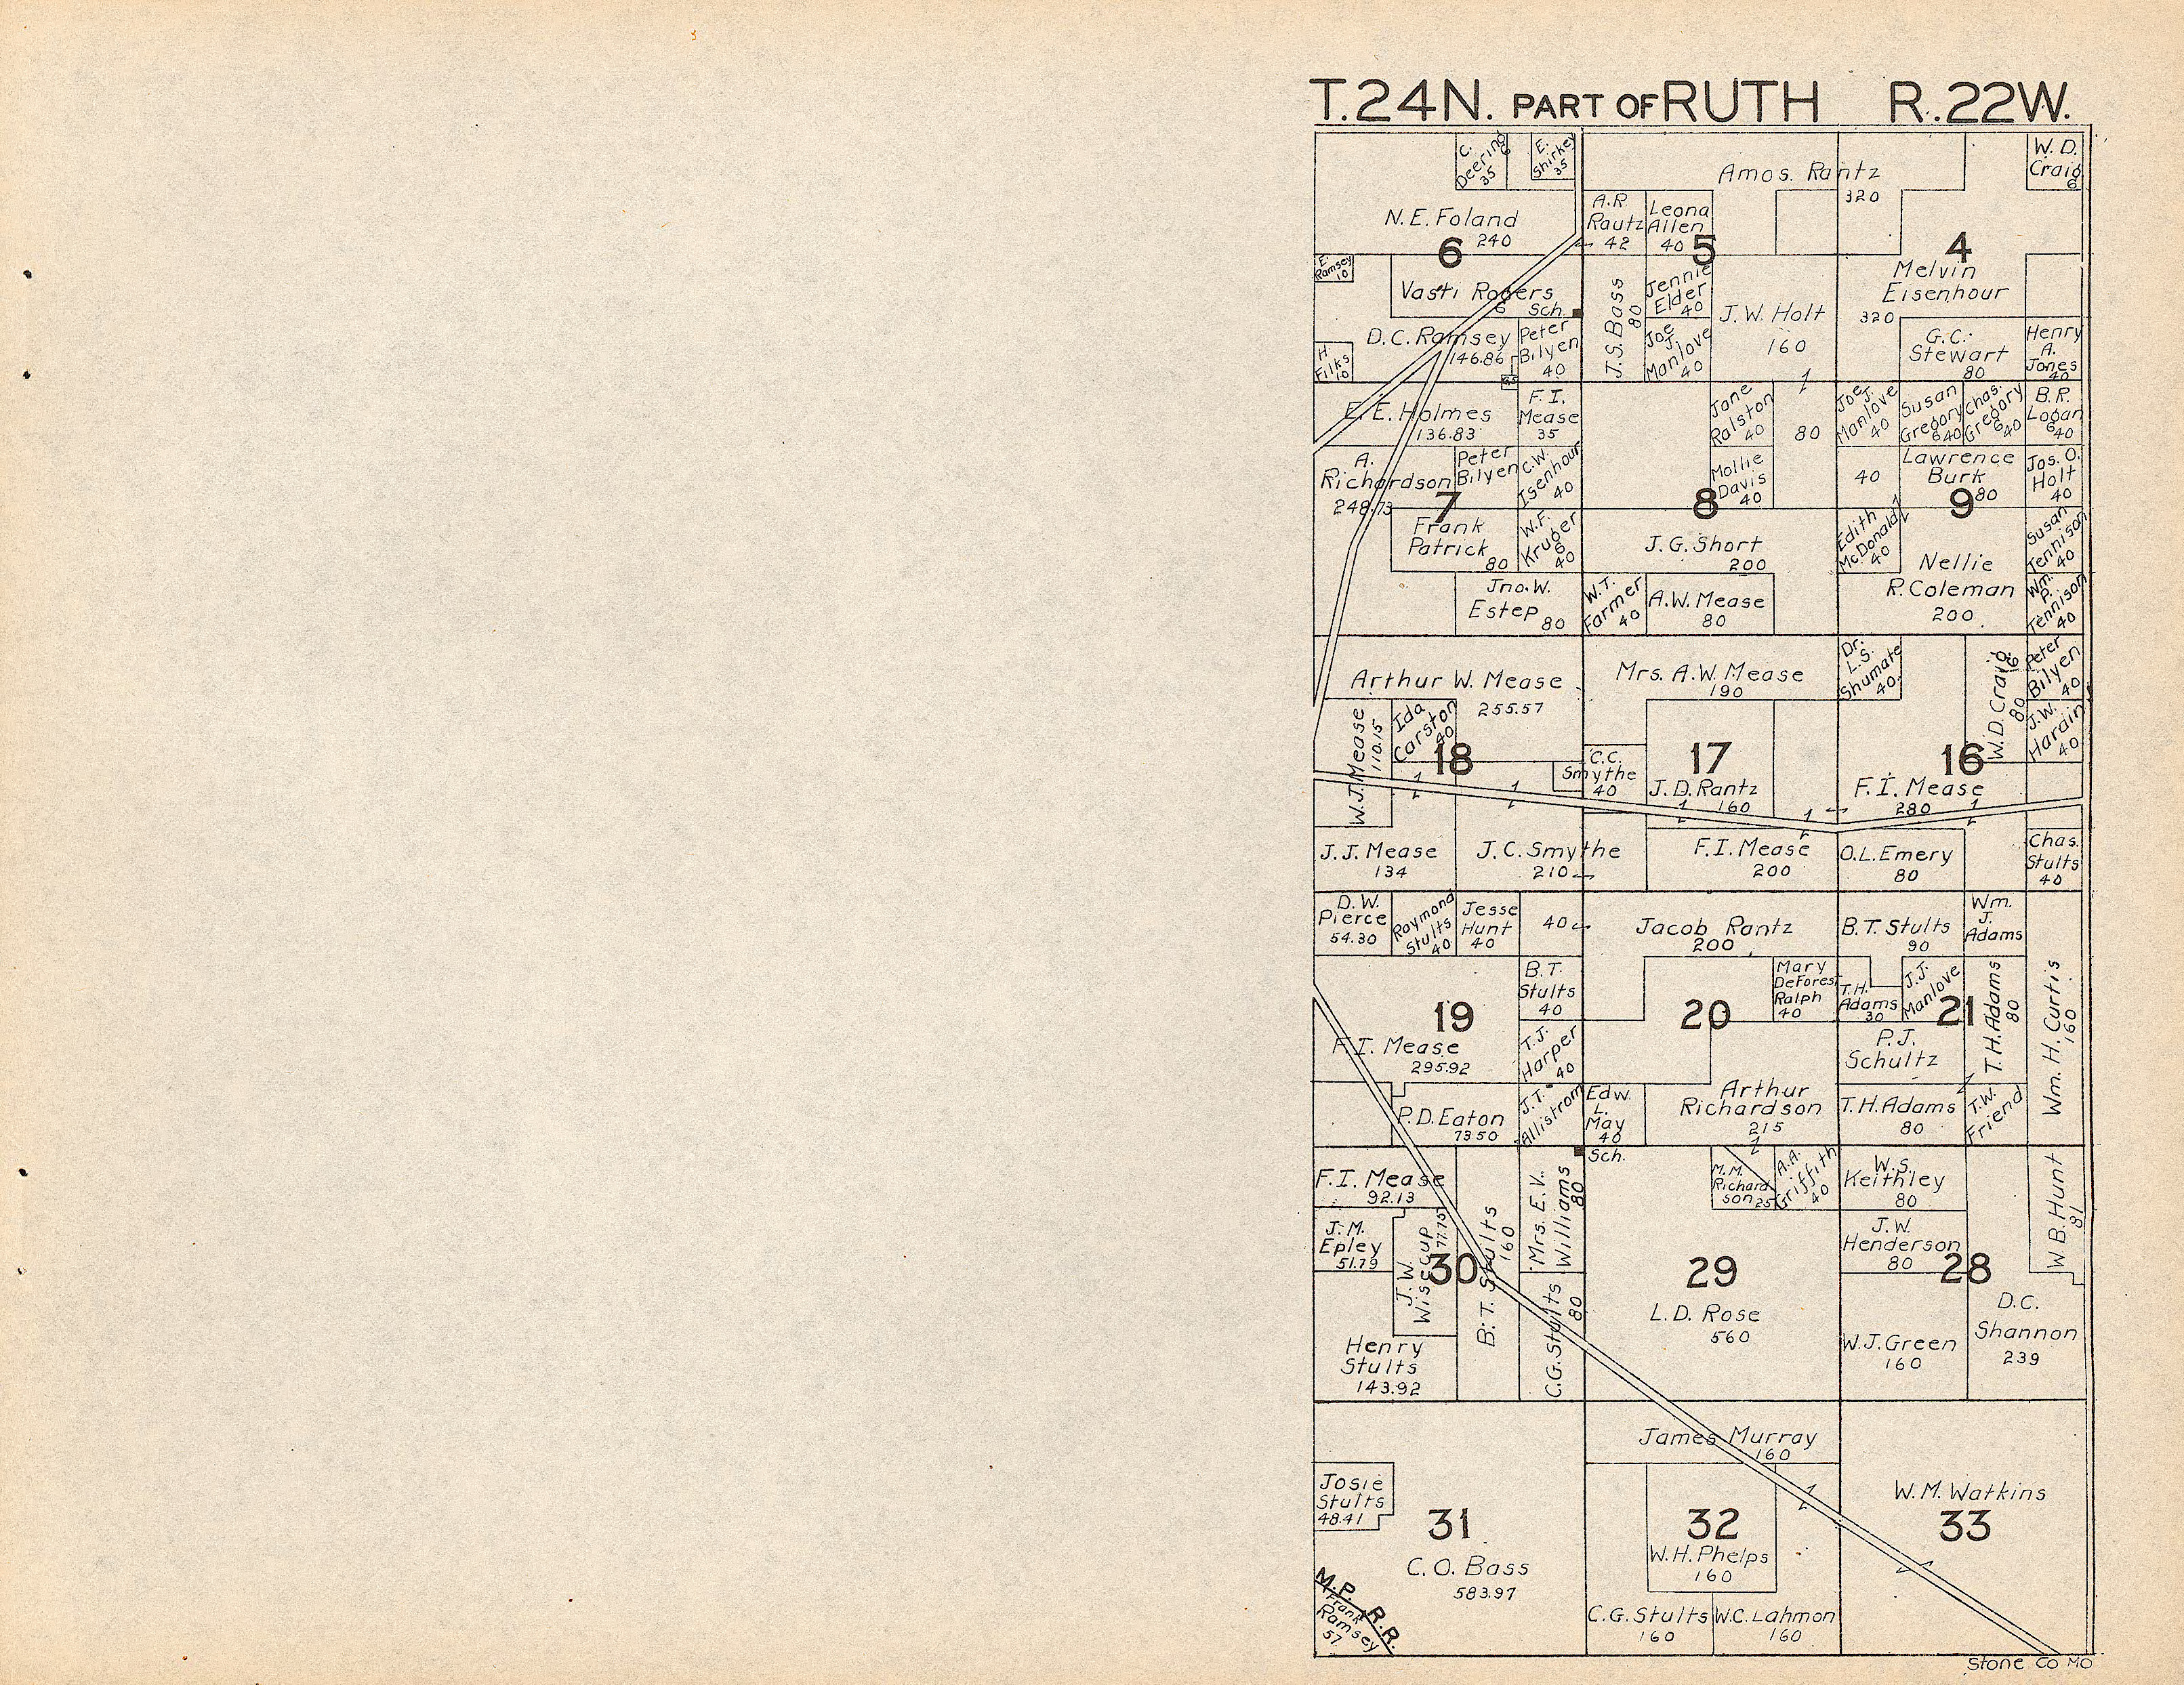 T.24N. PART OF RUTH R.22W.
C.
Deering
6
35
E.
Shirkey
35
Amos. Rantz
320
W. D.
Craig
6
N. E. Foland
240
6
A.R.
Rautz
42
Leona
Allen
40
5
4
E.
Ramsey
10
Vasti Rogers
6
Sch.
J.S. Bass
80
Jennie
Elder
40
J. W. Holt
160
Melvin
Eisenhour
320
D.C. Ramsey
146.86
Peter
Bilyen
40
Joe
J.
Manlove
40
G.C.
Stewart
80
Henry
A.
Jones
40
H.
Filks
10
E. E. Holmes
136.83
F. I.
Mease
35
Jane
Ralston
40
80
Joe
J.
Manlove
40
Susan
Gregory
640
Chas.
Gregory
640
B.R.
Logan
640
A.
Richardson
248.73
Peter
Bilyen
C.W.
Isenhour
40
Mollie
Davis
40
40
Lawrence
Burk
80
Jos. O.
Holt
40
7
8
9
Frank
Patrick
80
W.F.
Kruger
6
40
J. G. Short
200
Edith
McDonald
40
Nellie
R. Coleman
200
Susan
Tennison
40
Jno. W.
Estep
80
W.T.
Farmer
40
A.W. Mease
80
Wm.
P.
Tennison
40
Arthur W. Mease
255.57
Mrs. A.W. Mease
190
Dr.
L.S.
Shumate
40
W.D. Craig
16
80
Peter
Bilyen
40
W.J. Mease
110.15
Ida
Carston
40
J.W.
Hardin
40
18
17
16
C.C.
Smythe
40
J. D. Rantz
160
F. I. Mease
280
J. J. Mease
134
J. C. Smythe
210
F. I. Mease
200
O.L. Emery
80
Chas.
Stults
40
D. W.
Pierce
54.30
Raymond
Stults
40
Jesse
Hunt
40
40
Jacob Rantz
200
B.T. Stults
90
Wm.
J.
Adams
B. T.
Stults
40
Mary
DeForest
Ralph
40
T.H.
Adams
30
J.J.
Manlove
T.H. Adams
80
Wm. H. Curtis
160
19
20
21
F. I. Mease
295.92
T. J.
Harper
40
P. J.
Schultz
P. D. Eaton
73.50
J. T.
Allistrom
Edw.
L.
May
40
Arthur
Richardson
215
T. H. Adams
80
T.W.
Friend
Sch.
F. I. Mease
92.13
Mrs. E. V.
Williams
80
M. M.
Richard
son 25
A. A.
Griffith
40
W. S.
Keithley
80
W B. Hunt
81
J. M.
Epley
51.79
J. W.
Wisecup
77.75
B. T. Stults
160
J. W.
Henderson
80
30
29
28
C.G. Stults
80
L. D. Rose
560
D.C.
Shannon
239
Henry
Stults
143.92
W.J. Green
160
James Murray
160
Josie
Stults
48.41
W. M. Watkins
31
32
33
C. O. Bass
583.97
W. H. Phelps
160
M.P. R.R.
Frank
Ramsey
57
C. G. Stults
160
W.C. Lahmon
160
Stone Co Mo